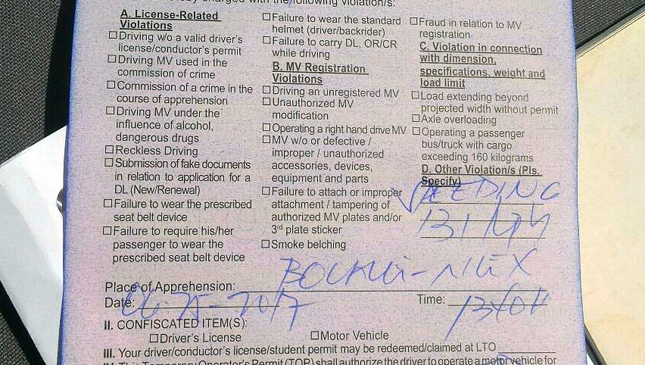 charged with the following violation/s:
A. License-Related
Violations
☐Driving w/o a valid driver's
license/conductor's permit
☐Driving MV used in the
commission of crime
☐Commission of a crime in the
course of apprehension
☐Driving MV under the
influence of alcohol,
dangerous drugs
☐Reckless Driving
☐Submission of fake documents
in relation to application for a
DL (New/Renewal)
☐Failure to wear the prescribed
seat belt device
☐Failure to require his/her
passenger to wear the
prescribed seat belt device
☐Failure to wear the standard
helmet (driver/backrider)
☐Failure to carry DL, OR/CR
while driving
B. MV Registration
Violations
☐Driving an unregistered MV
☐Unauthorized MV
modification
☐Operating a right hand drive MV
☐MV w/o or defective /
improper / unauthorized
accessories, devices,
equipment and parts
☐Failure to attach or improper
attachment / tampering of
authorized MV plates and/or
3rd plate sticker
☐Smoke belching
☐Fraud in relation to MV
registration
C. Violation in connection
with dimension,
specifications, weight and
load limit
☐Load extending beyond
projected width without permit
☐Axle overloading
☐Operating a passenger
bus/truck with cargo
exceeding 160 kilograms
D. Other Violation/s (Pls.
Specify)
Place of Apprehension:
Date:
Time:
II. CONFISCATED ITEM(S):
☐Driver's License ☐Motor Vehicle
III. Your driver/conductor's license/student permit may be redeemed/claimed at LTO
IV. This Temporary Operator's Permit (TOP) shall authorize the driver to operate a motor vehicle for